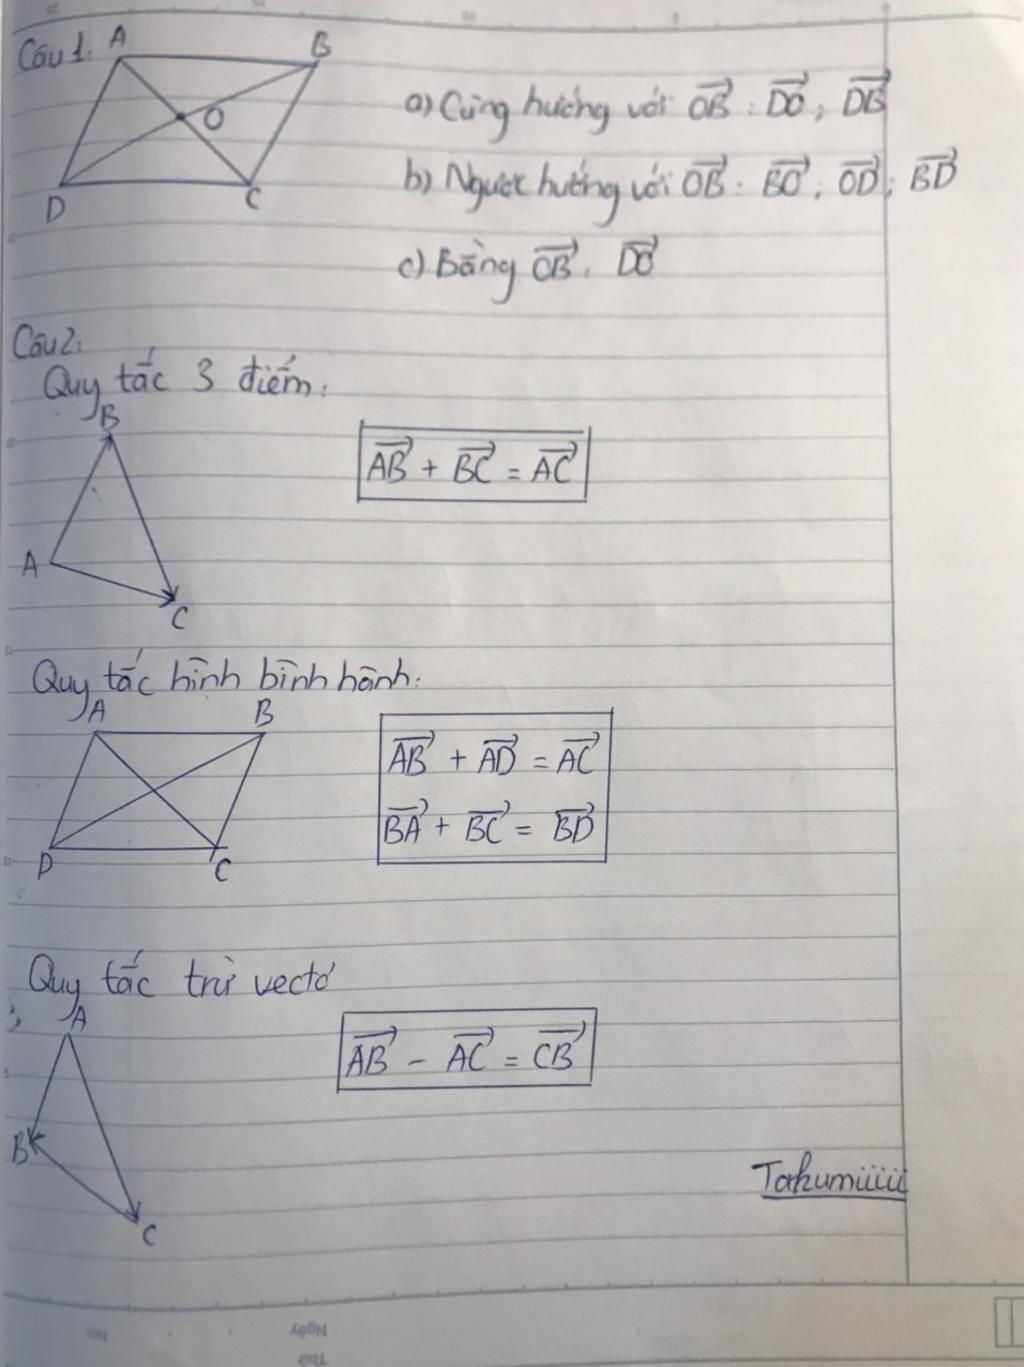 Câu 1. A B
O
D C
a) Cùng hướng với OB⃗ : DO⃗ ; DB⃗
b) Ngược hướng với OB⃗ : BO⃗ ; OD⃗ ; BD⃗
c) Bằng OB⃗ : DO⃗
Câu 2:
Quy tắc 3 điểm:
B
AB⃗ + BC⃗ = AC⃗
A
C
Quy tắc hình bình hành:
A B
AB⃗ + AD⃗ = AC⃗
BA⃗ + BC⃗ = BD⃗
D C
Quy tắc trừ vectơ
A
AB⃗ - AC⃗ = CB⃗
B
C
Takumiiiii
Ngày
Thứ
No.